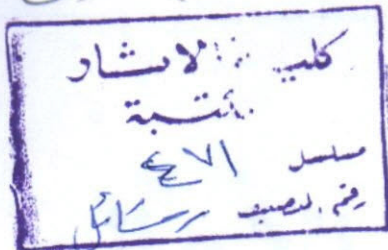 كلية الآثار
مكتبة
مسلسل ٤٧١
رقم التصنيف رسائل